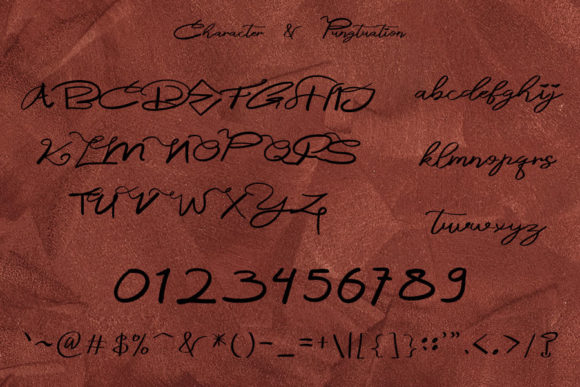 Character & Pungtuation
ABCDEFGHIJ
KLMNOPQRS
TUVWXYZ
abcdefghij
klmnopqrs
tuvwxyz
0123456789
`~@#$%^&*()-_=+\|[{]}:;'".<.>/?